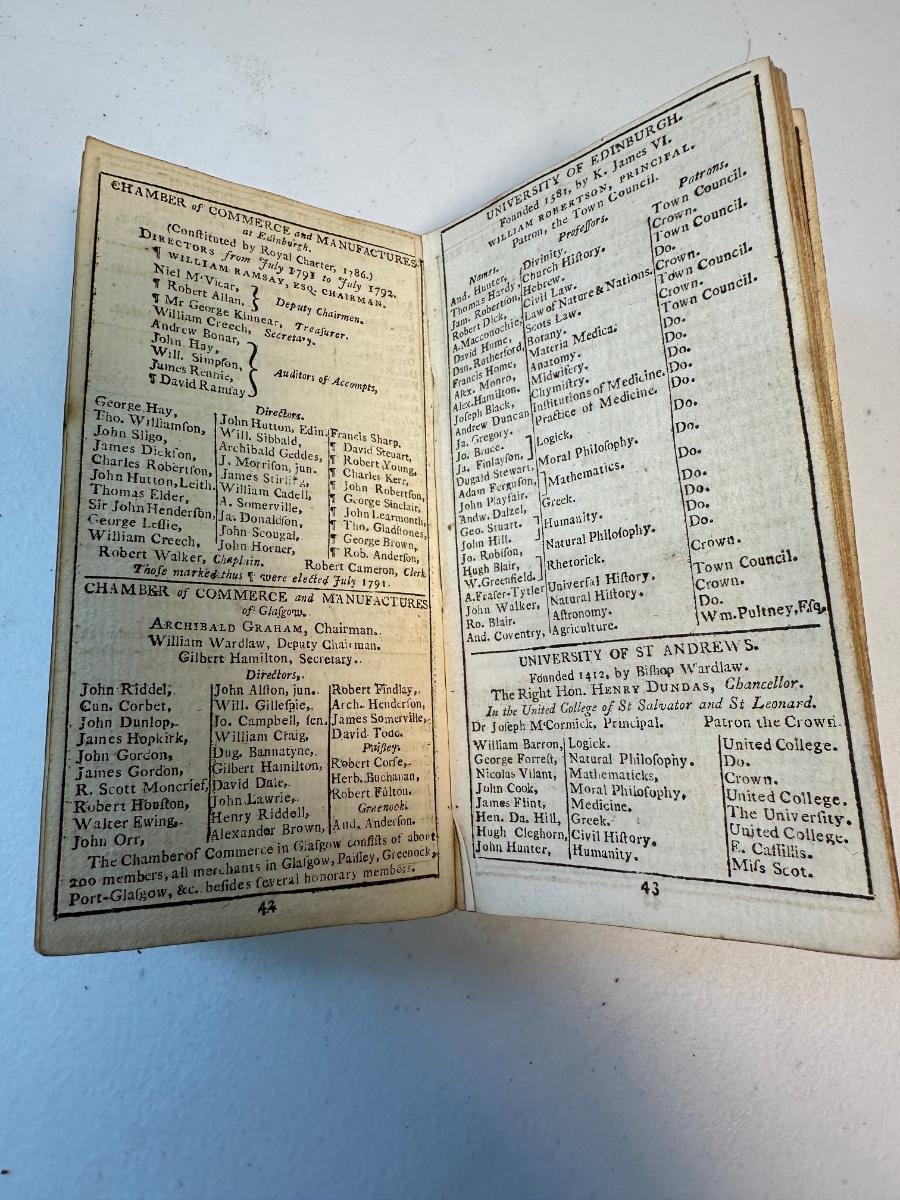 CHAMBER of COMMERCE and MANUFACTURES
at Edinburgh.
(Conſtituted by Royal Charter, 1786.)
DIRECTORS from July 1791 to July 1792.
¶ WILLIAM RAMSAY, ESQ. CHAIRMAN.
Niel M'Vicar,
¶ Robert Allan, } Deputy Chairmen.
¶ Mr George Kinnear, Treaſurer.
William Creech, Secretary.
Andrew Bonar,
John Hay,
Will. Simpſon, } Auditors of Accompts,
James Rennie,
¶ David Ramſay
Directors.
George Hay, John Hutton, Edin. Francis Sharp.
Tho. Williamſon, Will. Sibbald, ¶ David Steuart,
John Sligo, Archibald Geddes, ¶ Robert Young,
James Dickſon, J. Morriſon, jun. ¶ Charles Kerr,
Charles Robertſon, James Stirling, ¶ John Robertſon,
John Hutton, Leith. William Cadell, ¶ George Sinclair,
Thomas Elder, A. Somerville, ¶ John Learmonth,
Sir John Henderſon, Ja. Donaldſon, ¶ Tho. Gladſtones,
George Leſlie, John Scougal, ¶ George Brown,
William Creech, John Horner, ¶ Rob. Anderſon,
Robert Walker, Chaplain. Robert Cameron, Clerk
Thoſe marked thus ¶ were elected July 1791.
CHAMBER of COMMERCE and MANUFACTURES
of Glaſgow.
ARCHIBALD GRAHAM, Chairman.
William Wardlaw, Deputy Chairman.
Gilbert Hamilton, Secretary.
Directors,
John Riddel, John Alſton, jun. Robert Findlay,
Cun. Corbet, Will. Gilleſpie, Arch. Henderſon,
John Dunlop, Jo. Campbell, ſen. James Somerville,
James Hopkirk, William Craig, David Todd.
John Gordon, Dug. Bannatyne, Paiſley.
James Gordon, Gilbert Hamilton, Robert Corſe,
R. Scott Moncrief, David Dale, Herb. Buchanan,
Robert Houſton, John Lawrie, Robert Fulton.
Walter Ewing, Henry Riddell, Greenock.
John Orr, Alexander Brown, And. Anderſon.
The Chamber of Commerce in Glaſgow conſiſts of about
200 members, all merchants in Glaſgow, Paiſley, Greenock,
Port-Glaſgow, &c. beſides ſeveral honorary members.
42
UNIVERSITY OF EDINBURGH.
Founded 1581, by K. James VI.
WILLIAM ROBERTSON, PRINCIPAL.
Patron, the Town Council.
Names. Profeſſors. Patrons.
And. Hunter, Divinity. Town Council.
Thomas Hardy, Church Hiſtory. Crown.
Jam. Robertſon, Hebrew. Town Council.
Robert Dick, Civil Law. Do.
A. Macconochie, Law of Nature & Nations. Crown.
David Hume, Scots Law. Town Council.
Dan. Rutherford, Botany. Crown.
Francis Home, Materia Medica. Town Council.
Alex. Monro, Anatomy. Do.
Alex. Hamilton. Midwifery. Do.
Joſeph Black, Chymiſtry. Do.
Andrew Duncan Inſtitutions of Medicine. Do.
Ja. Gregory. Practice of Medicine. Do.
Jo. Bruce.
Ja. Finlayſon, ] Logick, Do.
Dugald Stewart, Moral Philoſophy. Do.
Adam Ferguſon,
John Playfair. ] Mathematics. Do.
Andw. Dalzel, Greek. Do.
Geo. Stuart.
John Hill. ] Humanity. Do.
Jo. Robiſon, Natural Philoſophy. Do.
Hugh Blair,
W. Greenfield. ] Rhetorick. Crown.
A. Fraſer-Tytler Univerſal Hiſtory. Town Council.
John Walker, Natural Hiſtory. Crown.
Ro. Blair. Aſtronomy. Do.
And. Coventry, Agriculture. Wm. Pultney, Eſq.
UNIVERSITY OF ST ANDREWS.
Founded 1412, by Biſhop Wardlaw.
The Right Hon. HENRY DUNDAS, Chancellor.
In the United College of St Salvator and St Leonard.
Dr Joſeph M'Cormick, Principal. Patron the Crown.
William Barron, Logick. United College.
George Forreſt, Natural Philoſophy. Do.
Nicolas Vilant, Mathematicks, Crown.
John Cook, Moral Philoſophy, United College.
James Flint, Medicine. The Univerſity.
Hen. Da. Hill, Greek. United College.
Hugh Cleghorn, Civil Hiſtory. E. Caſſillis.
John Hunter, Humanity. Miſs Scot.
43